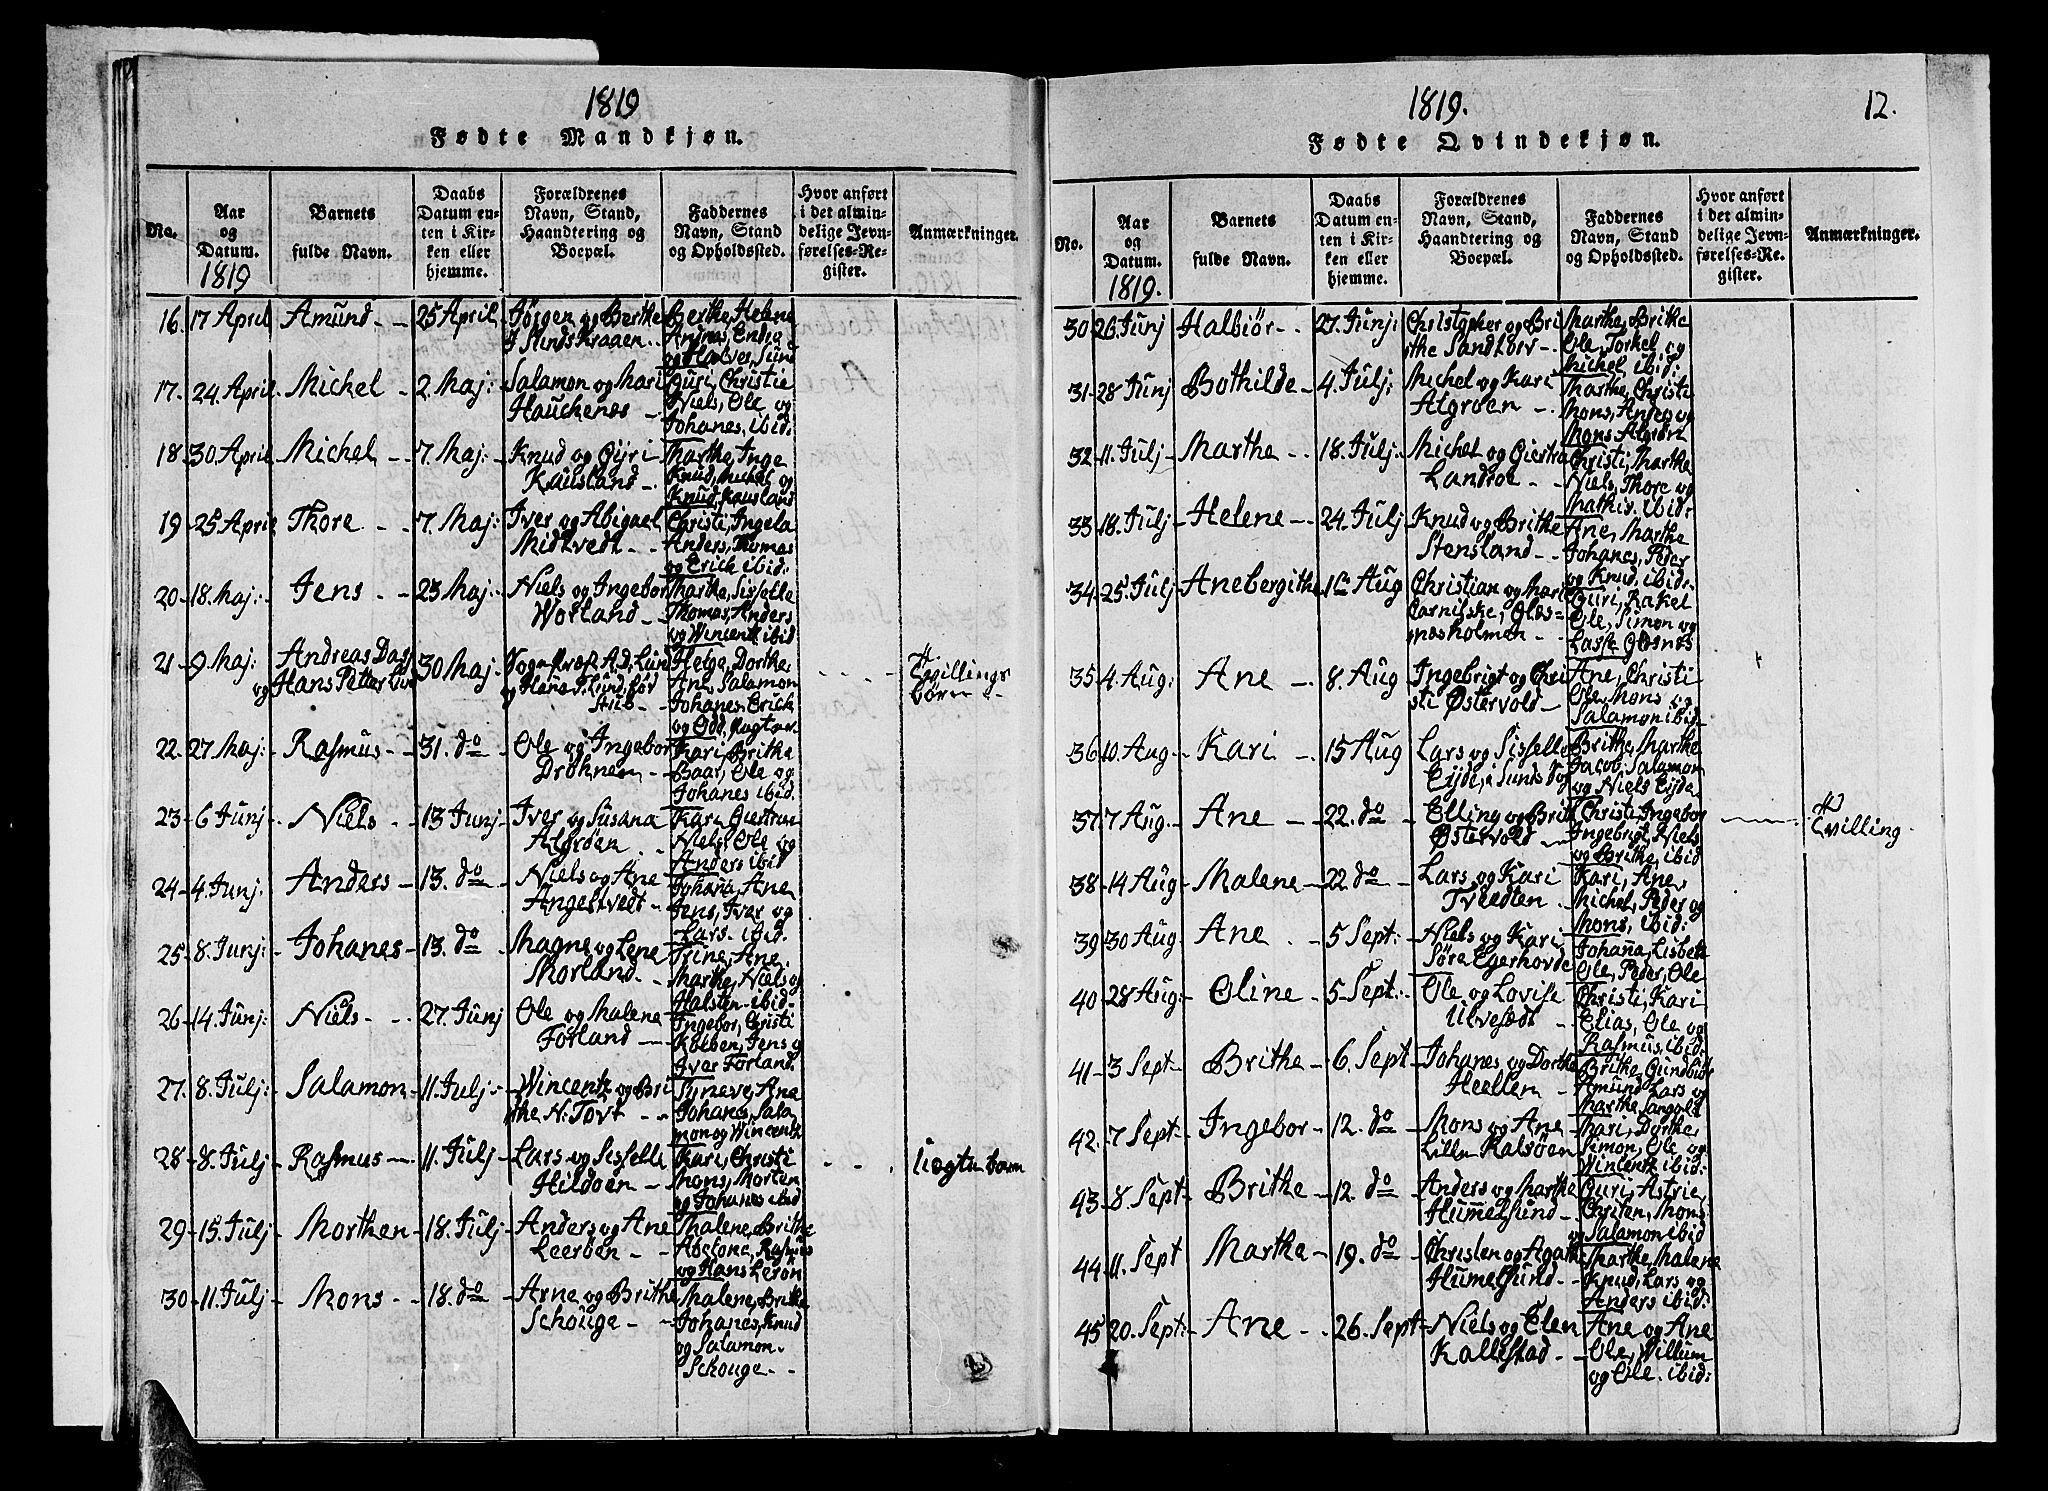 1819
Fødte Mandkjøn.
No.
Aar
og
Datum.
1819
Barnets
fulde Navn.
Daabs
Datum en-
ten i Kir-
ken eller
hjemme.
Forældrenes
Navn, Stand,
Haandtering og
Boepæl.
Faddernes
Navn, Stand
og Opholdssted.
Hvor anført
i det almin-
delige Jevn-
førelses-Re-
gister.
Anmærkninger.
16. 17 April Amund 25 April Jørgen og Berthe
Sunds Kragen
Berthe, Helene
og Halver, Sund
17. 24 April Michel 2. Maj: Salamon og Mari
Hauchenes
Guri, Christie
Niels, Ole og
Johanes, ibid:
18. 30 April Michel 7 Maj: Knud og Gyri
Kausland
Marthe, Inge
Knud, Michel og
Knud, Kausland
19 25 April Thore 7 Maj: Iver og Abigael
Midtvedt
Christi, Ingela
Anders, Thomas
og Erick ibid:
20 18. Maj: Jens 23 Maj: Niels og Ingebor
Worland
Marthe, Sisselle
Thomas, Anders
og Wincentz ibid
21 9 Maj: Andreas Dag
og Hans Petter
30 Maj
Helga, Dorthe,
Ane, Salamon
Johanes, Erick
og Odd,
Tvillings
børn
22. 27 Maj: Rasmus 31. do Ole og Ingebor
Dröhnen
Kari, Brithe
Baar, Ole og
Johanes ibid.
23 6 Junj Niels 13 Junj Iver og Susana
Algröen
Kari, Giertrue
Niels, Ole og
Anders ibid
24 4. Junj: Anders 13. do Niels og Ane
Angeltvedt
Johana, Ane,
Jens, Iver og
Lars. ibid.
25 8. Junj: Johanes 13. do Magne og Lene
Morland
Trine, Ane,
Marthe, Niels og
Halsten ibid
26 14. Junj: Niels 27. Junj Ole og Malene
Forland
Ingebor, Christi
Kolben, Jens og
Iver Forland.
27. 8. Julj: Salamon 11 Julj: Wincentz og Bri
the N: Tövt
Syneve, Ane
Johanes, Sala
mon og Wincentz
28 8. Julj Rasmus 11. Julj Lars og Sisselle
Hildöen
Kari, Christi
Mons, Morten
og Johanes ibid
29 15. Julj Morthen 18. Julj Anders og Ane
Leeröen
Malene, Brithe
Abelone, Rasmus
og Hans Lerön
30 11 Julj Mons 18. do Arne og Brithe
Schouge
Malene, Brithe
Johanes, Knud
og Salamon.
Schouge
1819.
12.
Fødte Qvindekjøn.
No.
Aar
og
Datum.
1819.
Barnets
fulde Navn.
Daabs
Datum en-
ten i Kir-
ken eller
hjemme.
Forældrenes
Navn, Stand,
Haandtering og
Boepæl.
Faddernes
Navn, Stand
og Opholdssted.
Hvor anført
i det almin-
delige Jevn-
førelses-Re-
gister.
Anmærkninger.
30 26 Junj Halbiör 27. Junj: Christopher og Bri
the Sandtorv
Marthe, Brithe
Ole, Torkel, og
Michel ibid:
31 28 Junj Bothilde 4. Julj: Michel og Kari
Algröen
Marthe, Christi
Mons, Anders og
Mons Algröen
32 11. Julj Marthe 18 Julj: Michel og Giertru
Landroe
Christi, Marthe
Niels, Thore og
Mathis. ibid:
33 18. Julj Helene 24 Julj Knud og Brithe
Stensland
Ane, Marthe
Johanes, Peder
og Knud, ibid:
34 25 Julj Anebergithe 1te Aug Christian og Mari
Carnilske, Gles-
næsholmen
Guri, Rakel
Ole, Simon og
Lasse Glesnæs
35 4. Aug: Ane 8. Aug Ingebrigt og Chri
sti Østervold
Ane, Christi
Ole, Mons og
Salamon ibid
36 10 Aug Kari 15 Aug Lars og Sisselle
Eijde, Sunds Sog
Brithe, Marthe
Jacob, Salamon
og Niels Eijde
37 7 Aug. Ane 22. do Elling og Brith
Østervold
Christi, Ingebor
Ingebrigt, Niels
og Brithe, ibid
Tvilling
38 14 Aug Malene 22 do Lars og Kari
Tveedten
Kari, Ane,
Michel, Peder og
Mons, ibid:
39 30 Aug Ane 5 Sept: Niels og Kari
Söre Egerhovde
Johanna, Lisbeth
Ole, Peder, Ole
40 28 Aug: Oline 5 Sept: Ole og Lovise
Ulvesedt
Christi, Kari
Elias, Ole og
Rasmus, ibid:
41 3 Sept Brithe 6. Sept Johanes og Dorthe
Heellem
Brithe, Gundbiör
Amund Lars og
Marthe
42 7 Sept Ingebor 12. do Mons og Ane
Lille Kalsöen
Mari, Dorthe,
Simon, Ole og
Wincentz ibid:
43 8. Sept Brithe 12 do Anders og Marthe
Hummelsund
Guri, Astrie,
Christen, Mons
og Salamon ibid
44 11. Sept Marthe 19. do Christen og Agathe
Hummelsund
Marthe, Malene
Knud, Lars og
Anders ibid:
45 20. Sept: Ane 26. Sept Niels og Elen
Kallestad
Ane og Ane
Ole, Willum
og Ole. ibid: